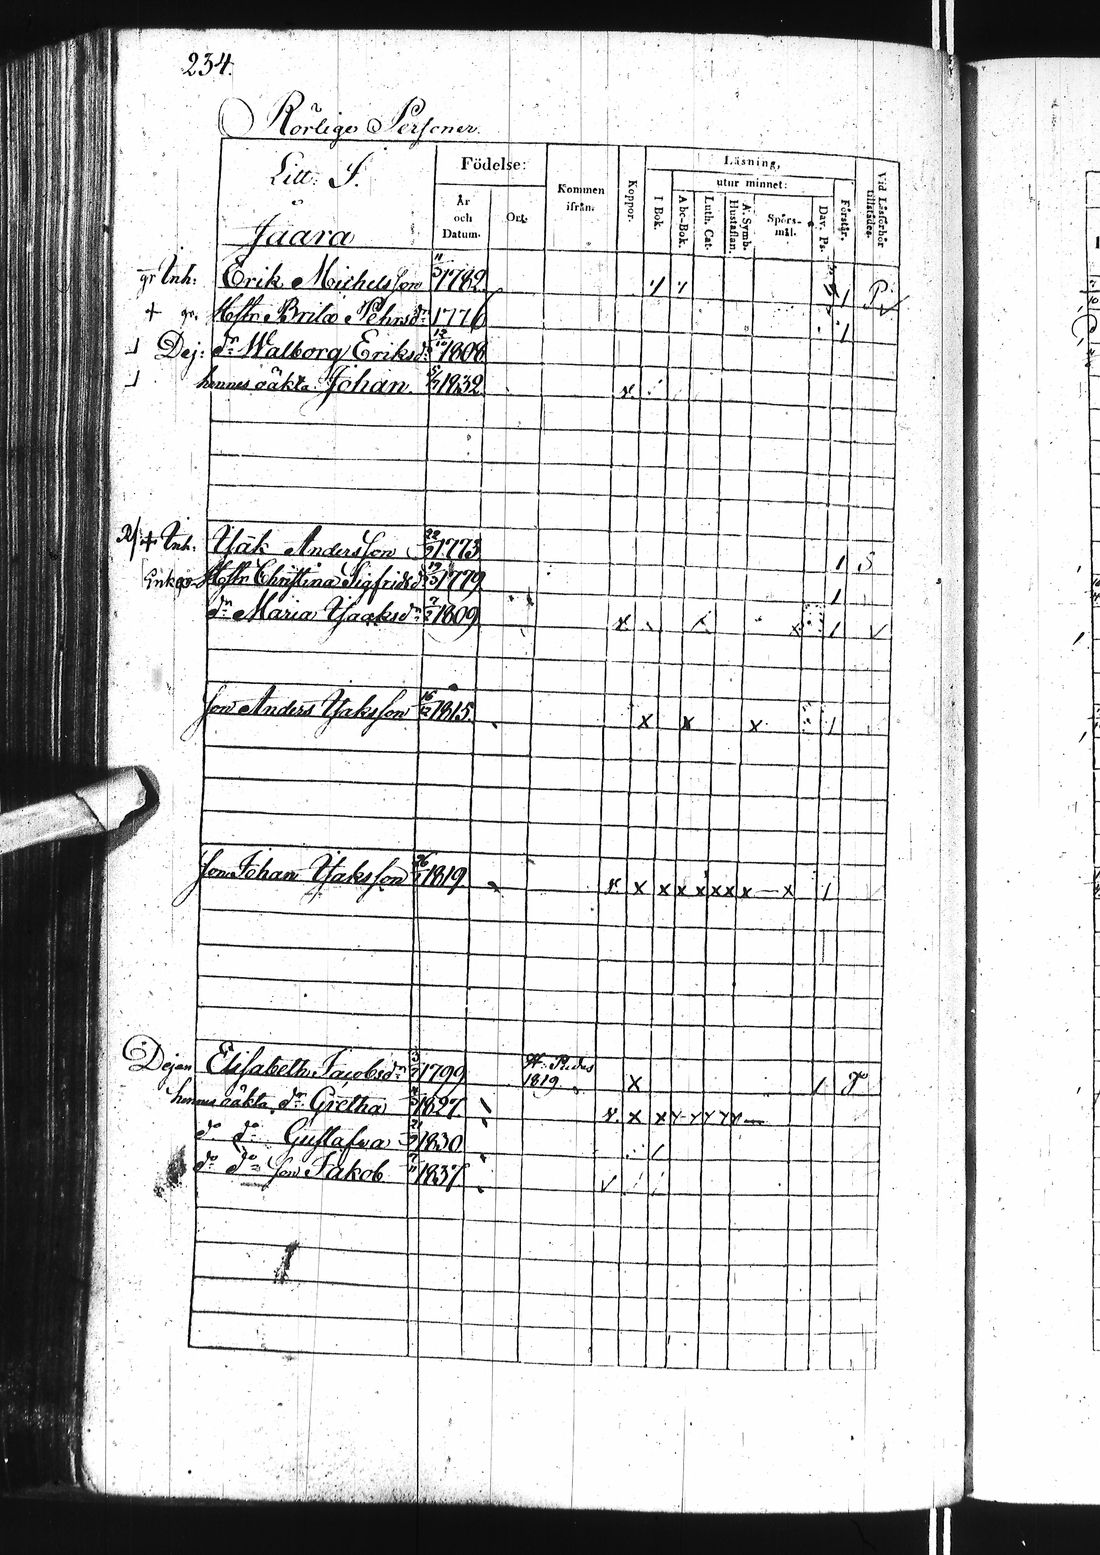 234.
Rörlige Personer.
Litt: I.
Jaara
Födelse:
År och Datum.
Ort.
Kommen ifrån.
Koppor.
Läsning,
I Bok.
utur minnet:
Abc-Bok.
Luth. Cat.
A. Symb. Hustaflan.
Spörs-mål.
Dav. Ps.
Förstår.
Vid Läsförhör tillstädes.
gr Inh: Erik Michelsson 1782
+ gr. Hstr Brita Pehrsdr 1776
Dej: dr Walborg Eriksdr 12/10 1808
hennes oäkta Johan 1832
+ Inh: Isak Andersson 22 1773 1 S
Enk Hstr Christina Sigfridsdr 19 1779 1
dr Maria Isaaksdr 1809
son Anders Isaksson 16/12 1815 x x x 1
son Johan Isaksson 26 1819 x x x x x x x x — x 1
Dejan Elisabeth Jacobsdr 1799 1819 x 1
hennes oäkta dr Gretha 1827
do do Gustafva 21 1830
do do son Jakob 1837